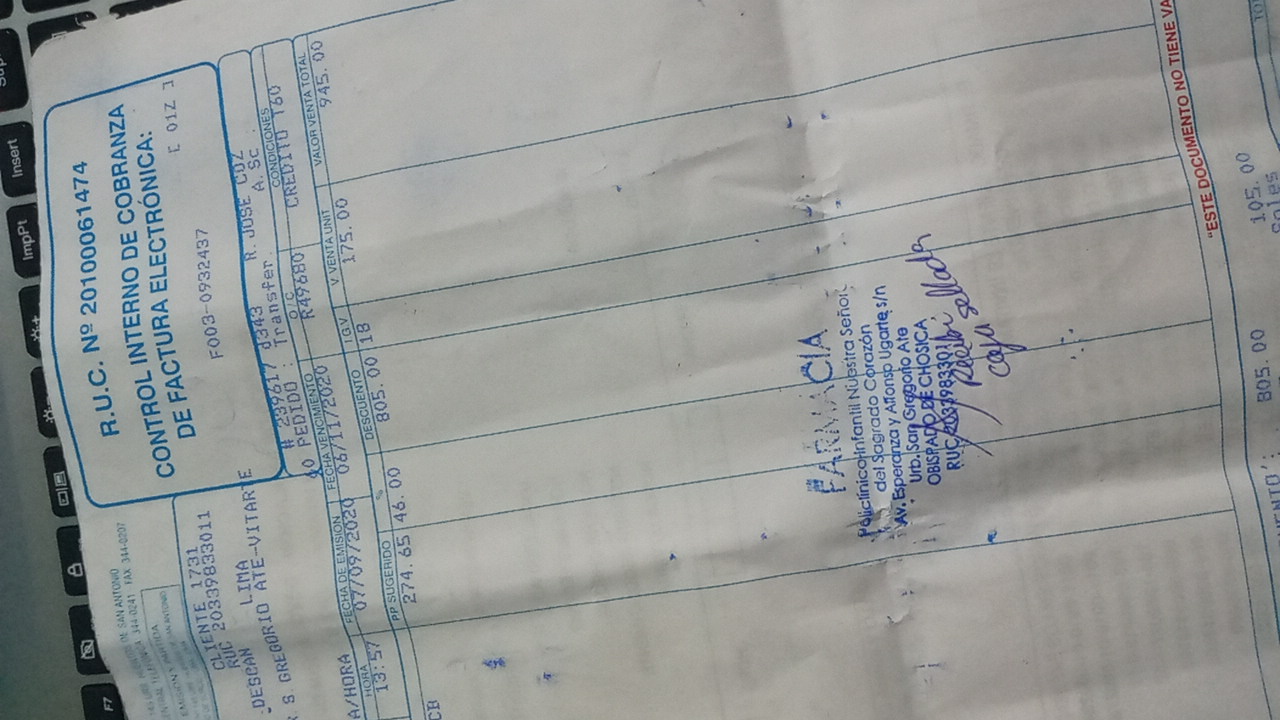 R.U.C. Nº 20100061474
CONTROL INTERNO DE COBRANZA
DE FACTURA ELECTRÓNICA:
[ 01Z ]
F003-0932437
DE SAN ANTONIO
344-0241 FAX 344-0207
CLIENTE 1731
RUC 20339833011
DESCAN LIMA
S. GREGORIO ATE-VITARTE
# 239617 d343 R. JOSE
PEDIDO : Transfer A.Sc
A/HORA
HORA
13:57
FECHA DE EMISIÓN
07/09/2020
FECHA VENCIMIENTO
06/11/2020
O/C
R49680
CONDICIONES
CREDITO T60
PP SUGERIDO
274.65
46.00
DESCUENTO
805.00
I.G.V
18
V.VENTA UNIT
175.00
VALOR VENTA TOTAL
945.00
CB
FARMACIA
Policlínico Infantil Nuestra Señor
del Sagrado Corazón
Av. Esperanza y Alfonso Ugarte s/n
Urb. San Gregorio Ate
OBISPADO DE CHOSICA
RUC 20339833011
Recibi sellada
Caja
"ESTE DOCUMENTO NO TIENE VA
805.00
105.00